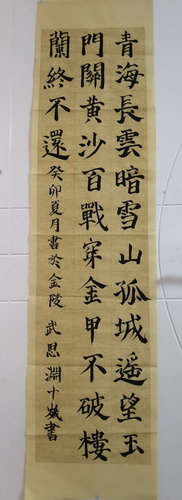 青海長雲暗雪山孤城遥望玉
門關黄沙百戰穿金甲不破樓
蘭終不還
癸卯夏月書於金陵 武思淵十歲書